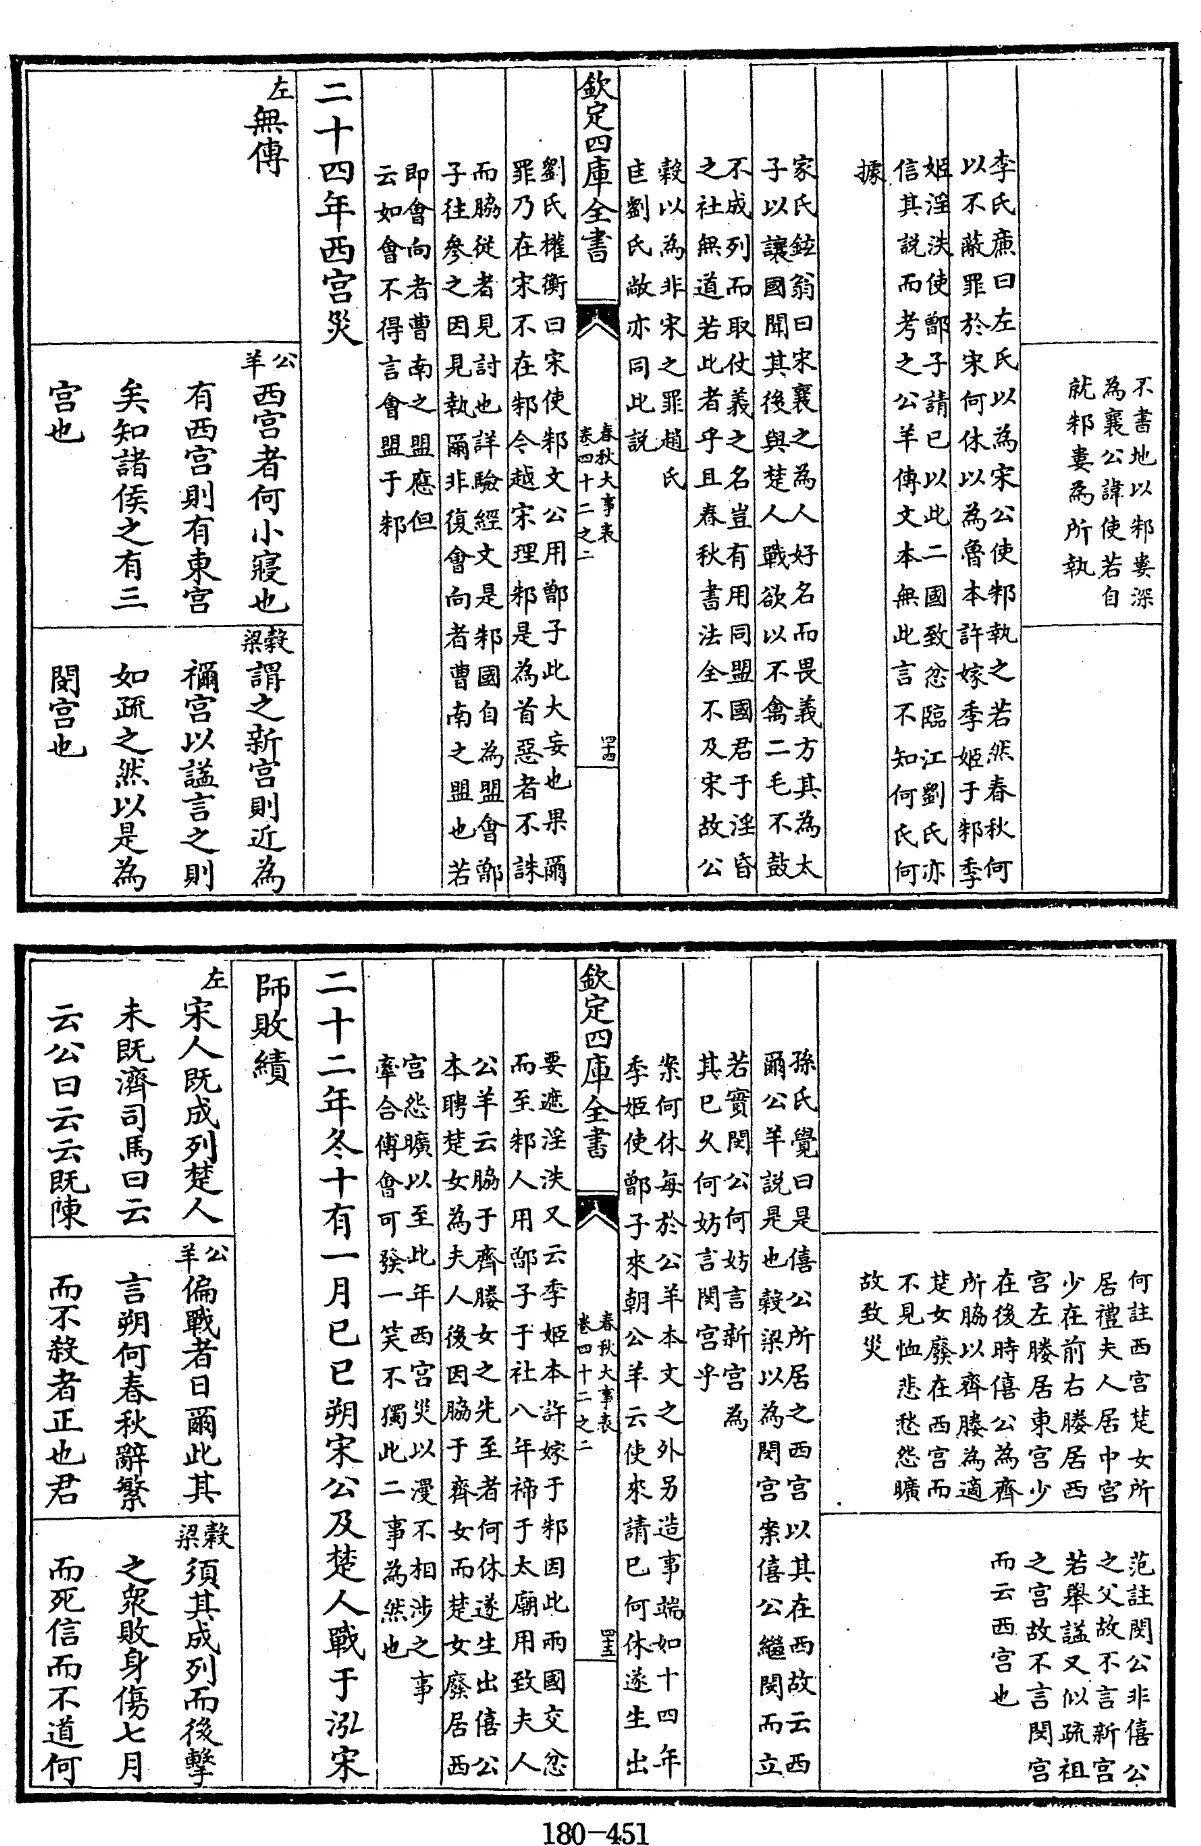 不書地以邾婁深
為襄公諱使若自
就邾婁為所執
李氏廉曰左氏以為宋公使邾執之若然春秋何
以不蔽罪於宋何休以為魯本許嫁季姬于邾季
姬淫泆使鄫子請已以此二國致忿臨江劉氏亦
信其說而考之公羊傳文本無此言不知何氏何
據
家氏鉉翁曰宋襄之為人好名而畏義方其為太
子以讓國聞其後與楚人戰欲以不禽二毛不鼓
不成列而取仗義之名豈有用同盟國君于淫昏
之社無道若此者乎且春秋書法全不及宋故公
穀以為非宋之罪趙氏
匡劉氏敞亦同此說
欽定四庫全書
春秋大事表
卷四十二之二
四十四
劉氏權衡曰宋使邾文公用鄫子此大妄也果爾
罪乃在宋不在邾令越宋理邾是為首惡者不誅
而脇從者見討也詳驗經文是邾國自為盟會鄫
子往參之因見執爾非復會向者曹南之盟也若
即會向者曹南之盟應但
云如會不得言會盟于邾
二十四年西宮災
左無傳
公羊西宮者何小寢也
有西宮則有東宮
矣知諸侯之有三
宮也
穀梁謂之新宮則近為
禰宮以諡言之則
如疏之然以是為
閔宮也
何註西宮楚女所
居禮夫人居中宮
少在前右媵居西
宮左媵居東宮少
在後時僖公為齊
所脇以齊媵為適
楚女廢在西宮而
不見恤悲愁怨曠
故致災
范註閔公非僖公
之父故不言新宮
若舉諡又似疏祖
之宮故不言閔宮
而云西宮也
孫氏覺曰是僖公所居之西宮以其在西故云西
爾公羊說是也穀梁以為閔宮案僖公繼閔而立
若實閔公何妨言新宮為
其已久何妨言閔宮乎
案何休每於公羊本文之外另造事端如十四年
季姬使鄫子來朝公羊云使來請已何休遂生出
欽定四庫全書
春秋大事表
卷四十二之二
四十五
要遮淫泆又云季姬本許嫁于邾因此兩國交忿
而至邾人用鄫子于社八年禘于太廟用致夫人
公羊云脇于齊媵女之先至者何休遂生出僖公
本聘楚女為夫人後因脇于齊女而楚女廢居西
宮怨曠以至此年西宮災以漫不相涉之事
牽合傅會可發一笑不獨此二事為然也
二十二年冬十有一月己巳朔宋公及楚人戰于泓宋
師敗績
左宋人既成列楚人
未既濟司馬曰云
云公曰云云既陳
公羊偏戰者日爾此其
言朔何春秋辭繁
而不殺者正也君
穀梁須其成列而後擊
之衆敗身傷七月
而死信而不道何
180-451